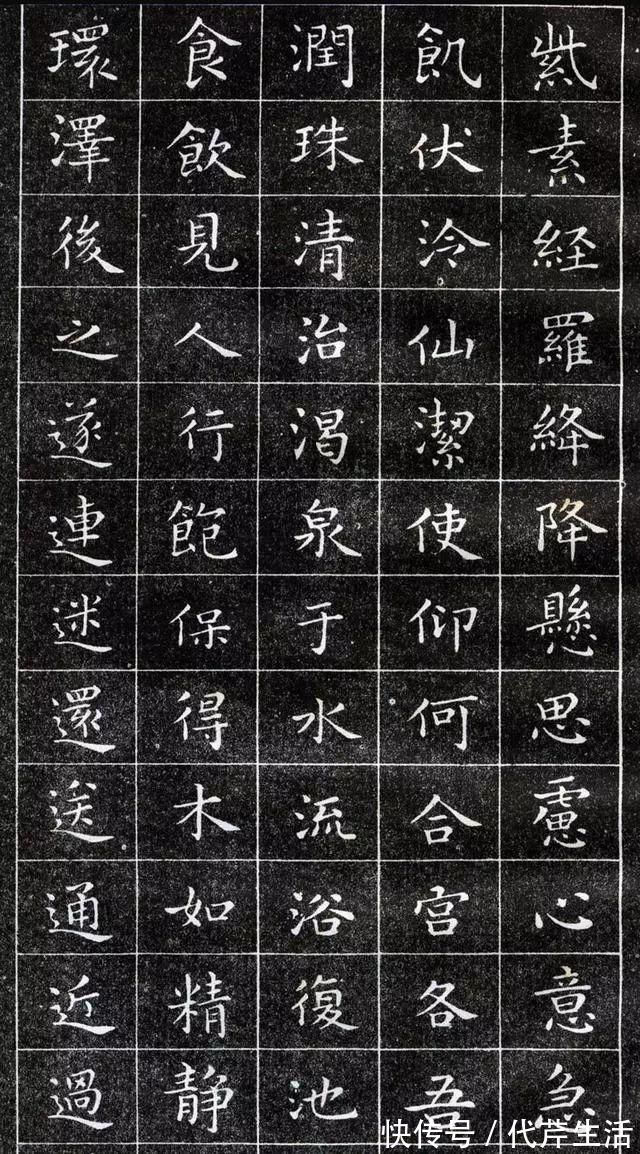 紫素経羅絳降懸思慮心意急
飢伏冷仙潔使仰何合宮各吾
潤珠清治渴泉于水流浴復池
食飲見人行飽保得木如精靜
環澤後之遂連迷還送通近過
快传号／代芹生活